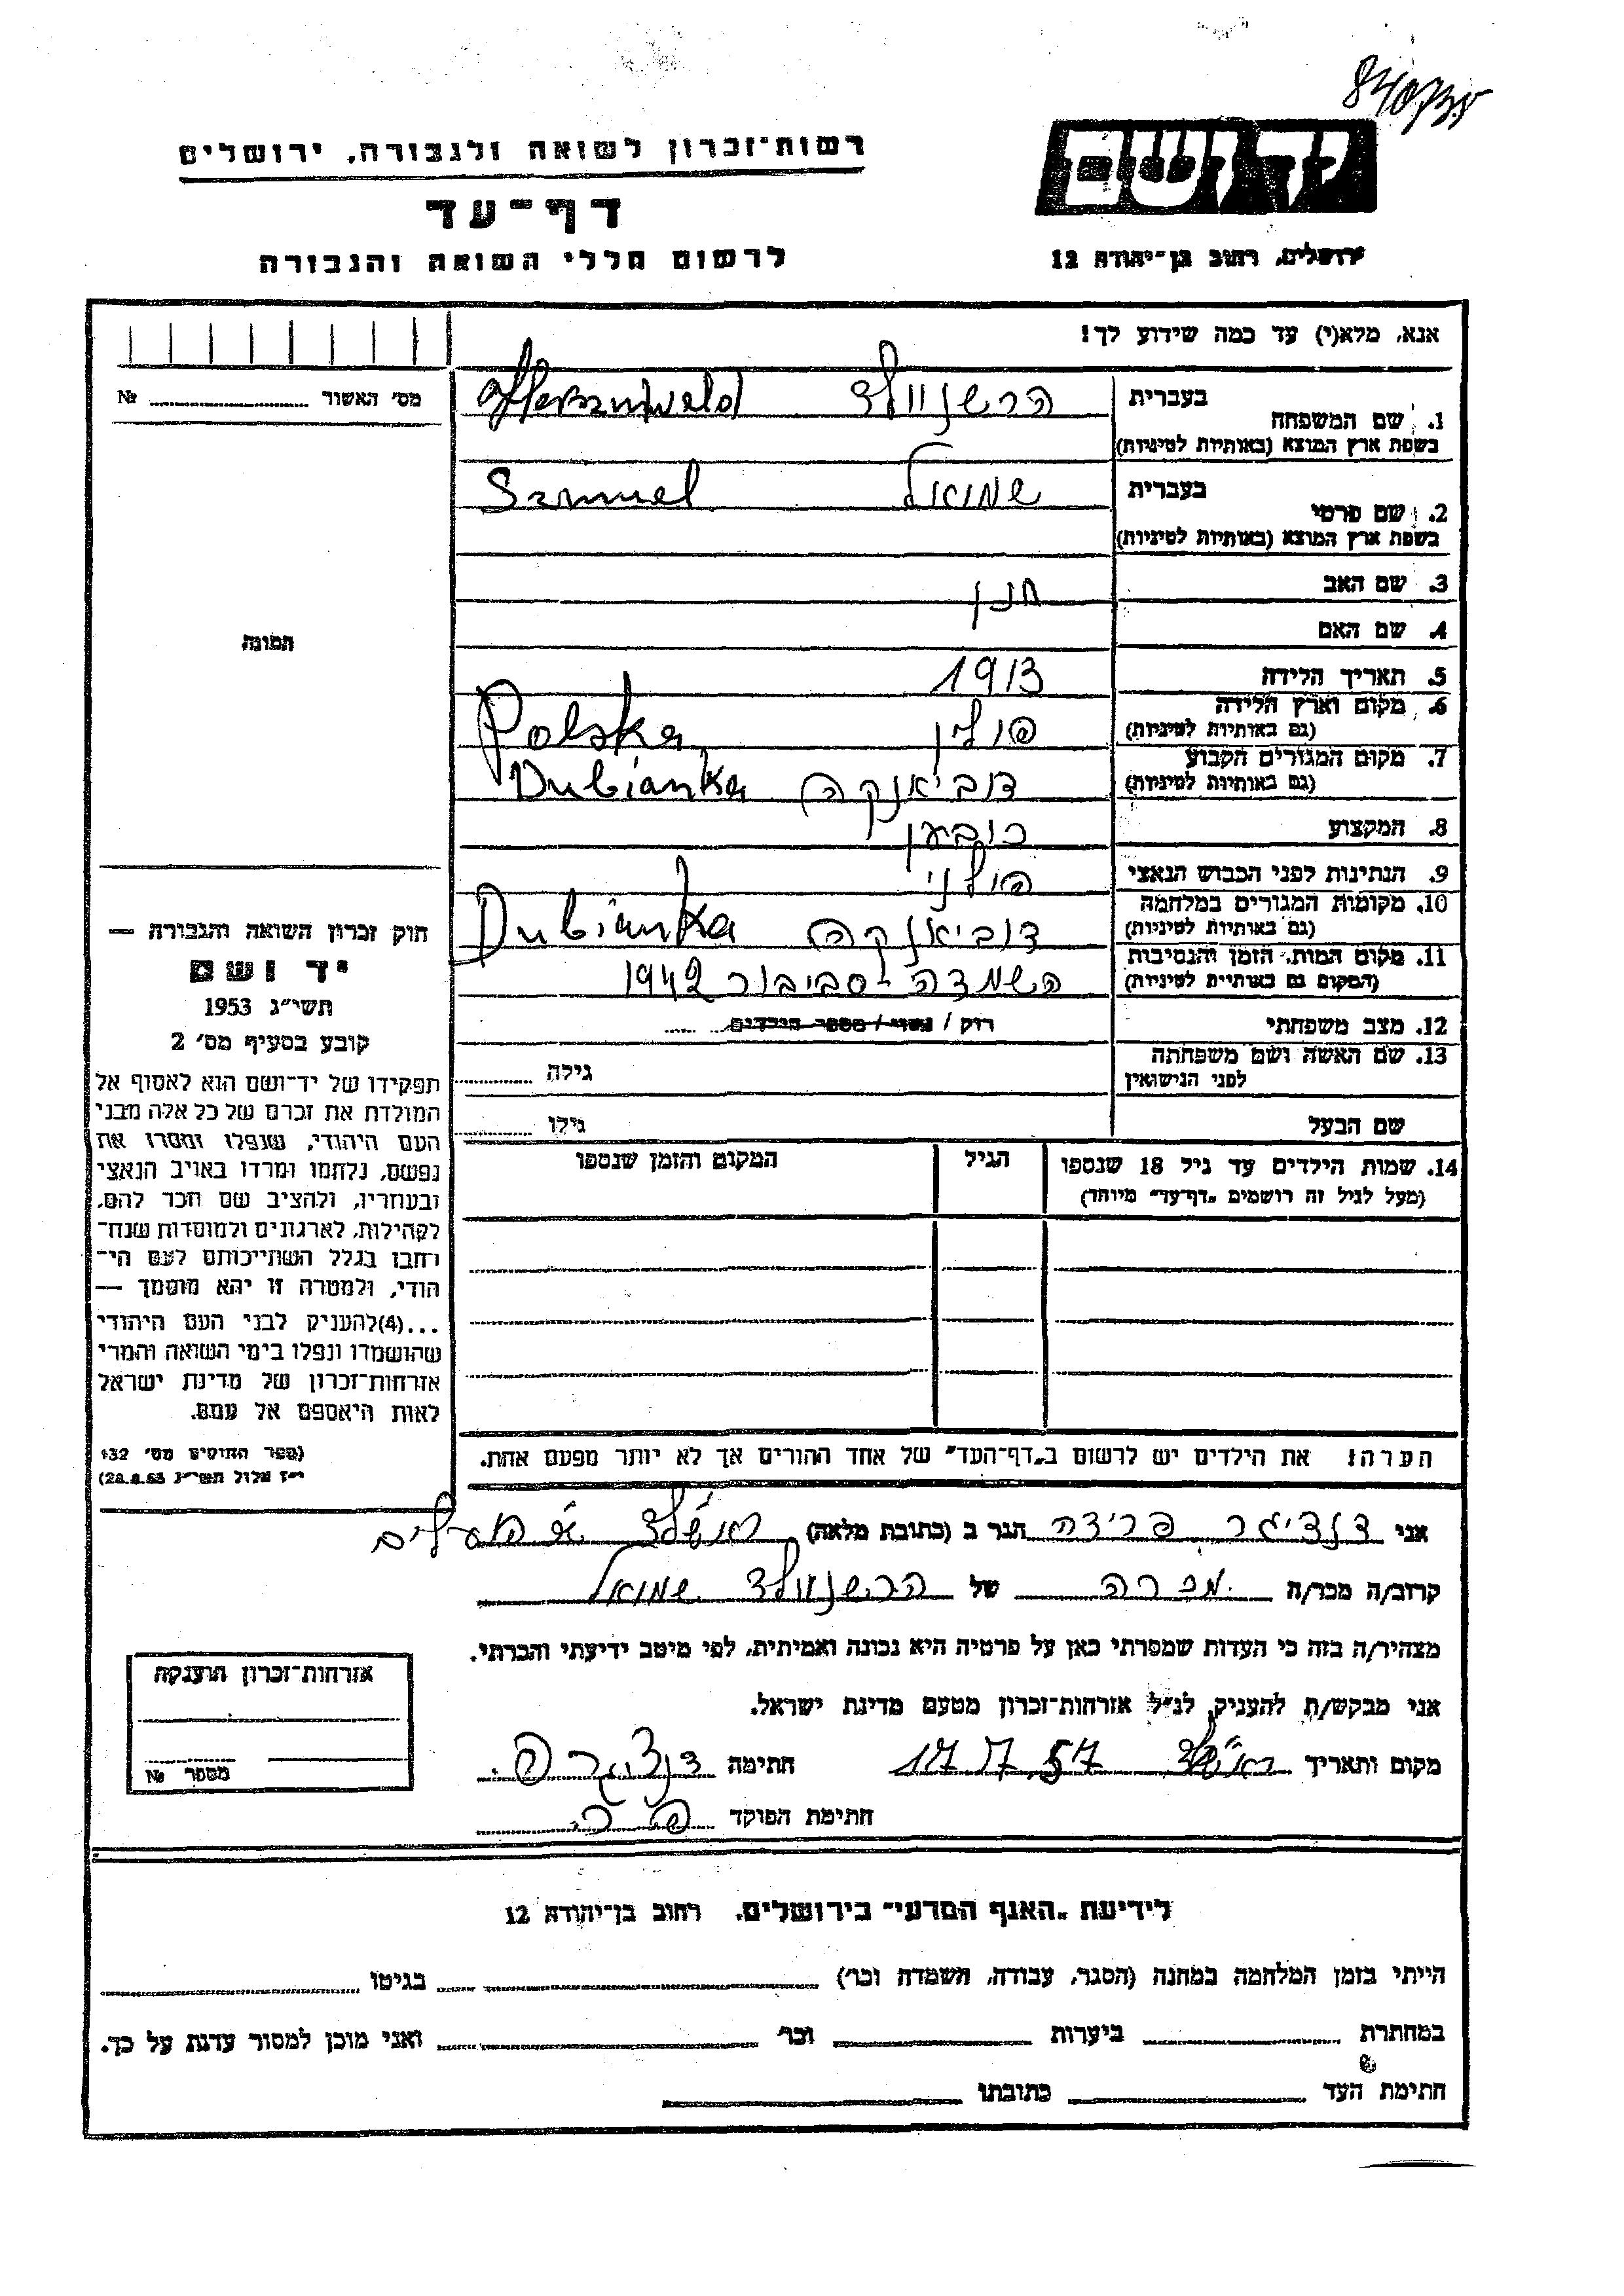 84073.5
רשות־זכרון לשואה ולגבורה, ירושלים
יד ושם
דף־עד
לרשום חללי השואה והגבורה
ירושלים, רחוב בן־יהודה 12
אנא, מלא(י) עד כמה שידוע לך!
מס׳ האשור № 
1. שם המשפחה בעברית הרשנוולד Hersznweld
בשפת ארץ המוצא (באותיות לטיניות)
2. שם פרטי בעברית שמואל Szmuel
בשפת ארץ המוצא (באותיות לטיניות)
3. שם האב חנן
4. שם האם
תמונה
5. תאריך הלידה 1913
6. מקום וארץ הלידה פולין Polska
(גם באותיות לטיניות)
7. מקום המגורים הקבוע דוביאנקה Dubianka
(גם באותיות לטיניות)
8. המקצוע כובען
9. הנתינות לפני הכבוש הנאצי פולני
10. מקומות המגורים במלחמה דוביאנקה Dubianka
(גם באותיות לטיניות)
11. מקום המות, הזמן והנסיבות השמדה - סביבור 1942
(המקום גם באותיות לטיניות)
12. מצב משפחתי רווק / נשוי / מספר הילדים
13. שם האשה ושם משפחתה גילה
לפני הנישואין
שם הבעל גילו
14. שמות הילדים עד גיל 18 שנספו הגיל המקום והזמן שנספו
(מעל לגיל זה רושמים „דף־עד״ מיוחד)
חוק זכרון השואה והגבורה —
יד ושם
תשי״ג 1953
קובע בסעיף מס׳ 2
תפקידו של יד־ושם הוא לאסוף אל
המולדת את זכרם של כל אלה מבני
העם היהודי, שנפלו ומסרו את
נפשם, נלחמו ומרדו באויב הנאצי
ובעוזריו, ולהציב שם וזכר להם,
לקהילות, לארגונים ולמוסדות שנח־
רחבו בגלל השתייכותם לעם הי־
הודי, ולמטרה זו יהא מוסמך —
...(4) להעניק לבני העם היהודי
שהושמדו ונפלו בימי השואה והמרי
אזרחות־זכרון של מדינת ישראל
לאות היאספם אל עמם.
(ספר החוקים מס׳ 132
י״ז אלול תשי״ג 28.8.53)
הערה: את הילדים יש לרשום ב„דף־העד״ של אחד ההורים אך לא יותר מפעם אחת.
אני דנציגר פרידה הגר ב (כתובת מלאה) ראשל״צ
קרוב/ה מכר/ה מכרה של הרשנוולד שמואל
מצהיר/ה בזה כי העדות שמסרתי כאן על פרטיה היא נכונה ואמיתית, לפי מיטב ידיעתי והכרתי.
אני מבקש/ת להעניק לנ״ל אזרחות־זכרון מטעם מדינת ישראל.
מקום ותאריך ראשל״צ 17.7.57 חתימה דנציגר פ.
חתימת הפוקד
אזרחות־זכרון הוענקה
מספר №
לידיעת „האגף המדעי״ בירושלים, רחוב בן־יהודה 12
הייתי בזמן המלחמה במחנה (הסגר, עבודה, השמדה וכו׳) בגיטו
במחתרת ביערות וכו׳ ואני מוכן למסור עדות על כך.
חתימת העד כתובתו